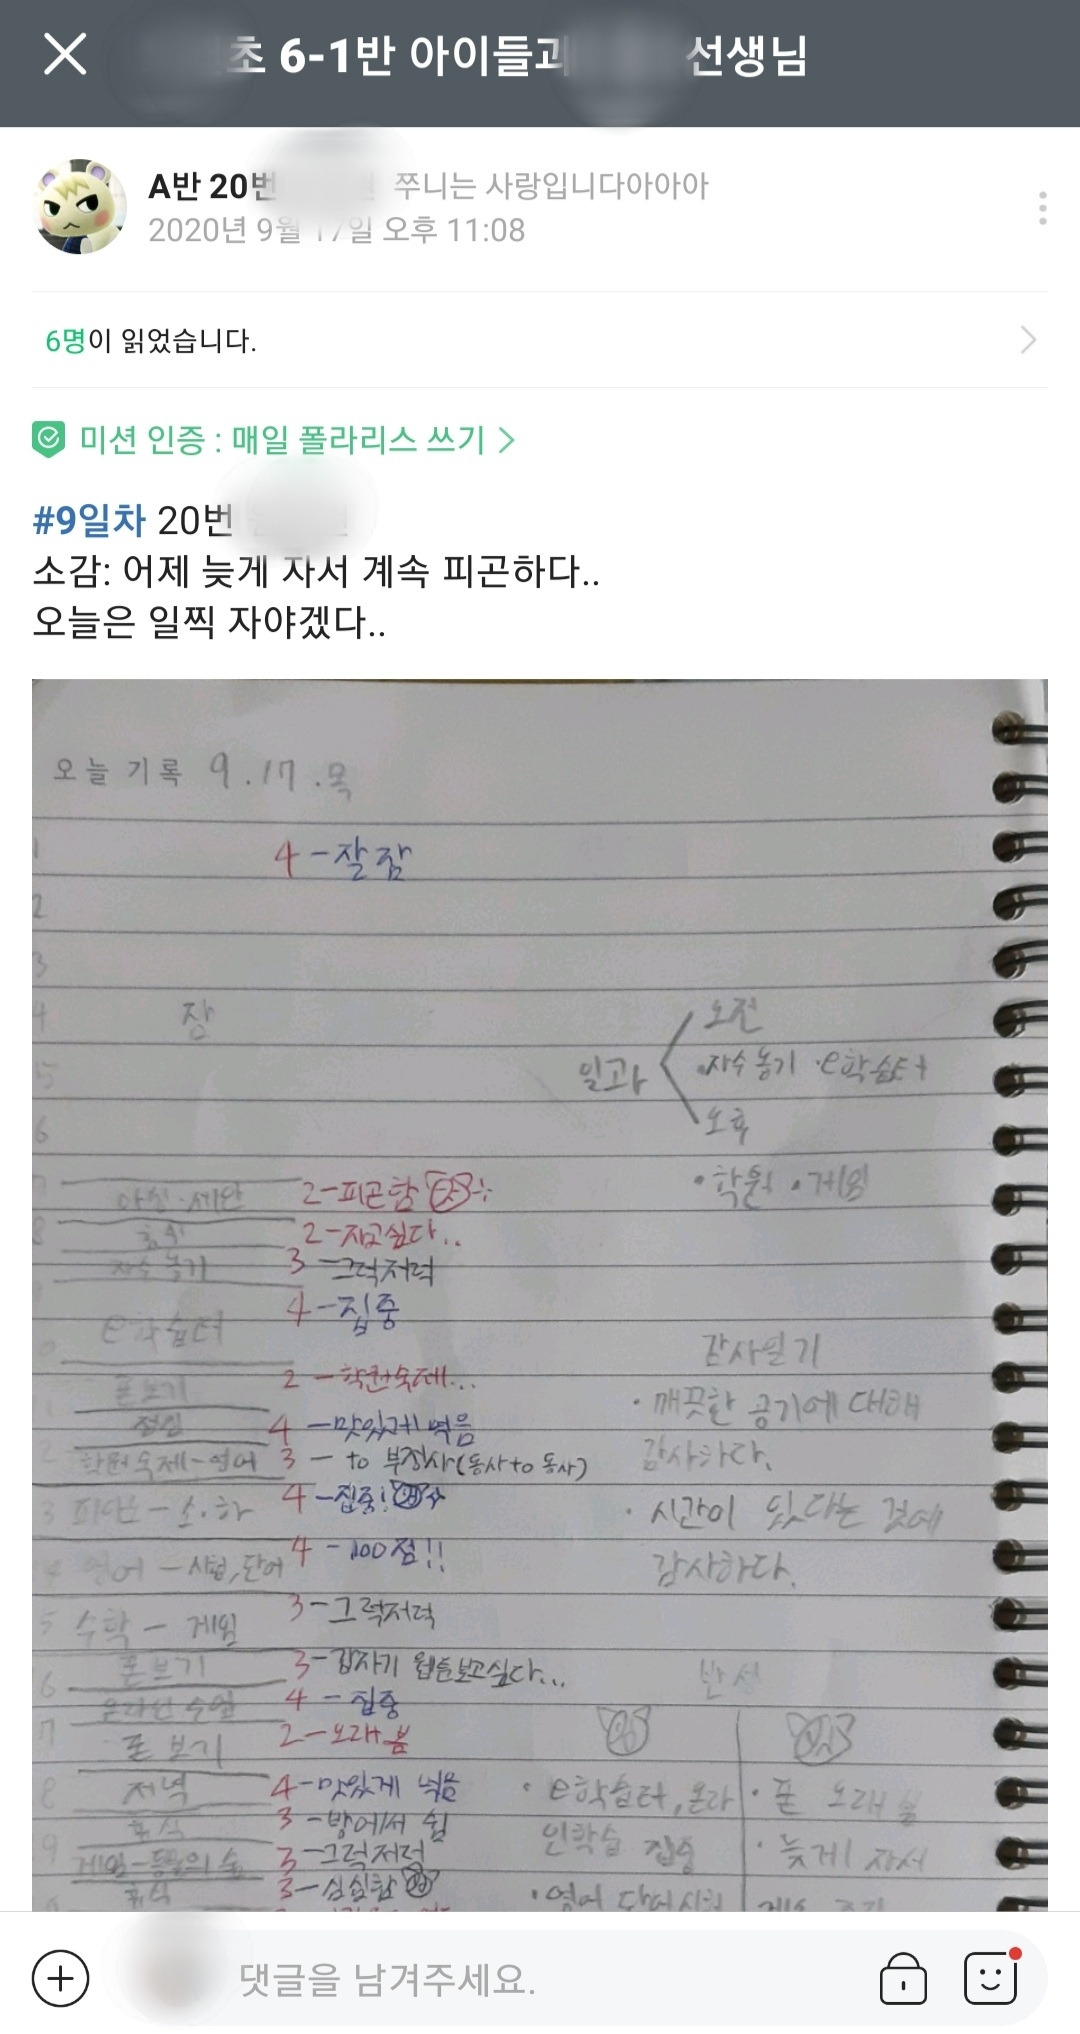 초 6-1반 아이들과 선생님
A반 20번 쭈니는 사랑입니다아아아
2020년 9월 17일 오후 11:08
6명이 읽었습니다.
미션 인증 : 매일 폴라리스 쓰기
#9일차 20번
소감: 어제 늦게 자서 계속 피곤하다..
오늘은 일찍 자야겠다..
오늘 기록 9.17.목
1 4-잘잠
2
3
4 잠 오전
5 일과 •자수 놓기 •e학습터
6 오후
•학원 •게임
7 아침·세안 2-피곤함
8 휴식 2-자고싶다..
자수 놓기 3-그럭저럭
e학습터 4-집중
감사일기
폰보기 2-학원숙제...
• 깨끗한 공기에 대해
1 점심 4-맛있게 먹음
2 학원숙제-영어 3- to 부정사(동사 to 동사)
감사하다.
3 피아노-소.하 4-집중!
• 시간이 있다는 것에
4 영어-시험,단어 4-100점!!
감사하다.
5 수학-게임 3-그럭저럭
6 폰보기 3-갑자기 웹툰보고싶다...
반성
온라인 수업 4-집중
7 폰 보기 2-오래 봄
8 저녁 4-맛있게 먹음
• e학습터, 온라 • 폰 오래 봄
휴식 3-방에서 쉼
인학습 집중 • 늦게 자서
9 게임-동물의 숲 3-그럭저럭
휴식 3-심심함
• 영어 단어시험
댓글을 남겨주세요.